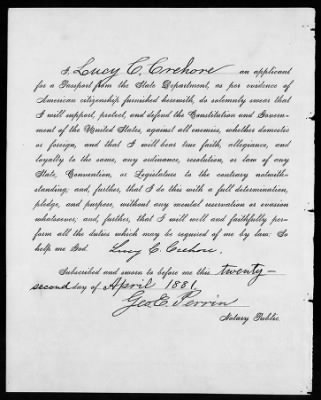 I, Lucy C. Crehore an applicant
for a Passport from the State Department, as per evidence of
American citizenship furnished herewith, do solemnly swear that
I will support, protect, and defend the Constitution and Govern-
ment of the United States, against all enemies, whether domestic
or foreign, and that I will bear true faith, allegiance, and
loyalty to the same, any ordinance, resolution, or law of any
State, Convention, or Legislature to the contrary notwith-
standing; and, further, that I do this with a full determination,
pledge, and purpose, without any mental reservation or evasion
whatsoever; and, further, that I will well and faithfully per-
form all the duties which may be required of me by law: So
help me God. Lucy C. Crehore.
Subscribed and sworn to before me this twenty-
second day of April 1881.
Geo. E. Perrin
Notary Public.